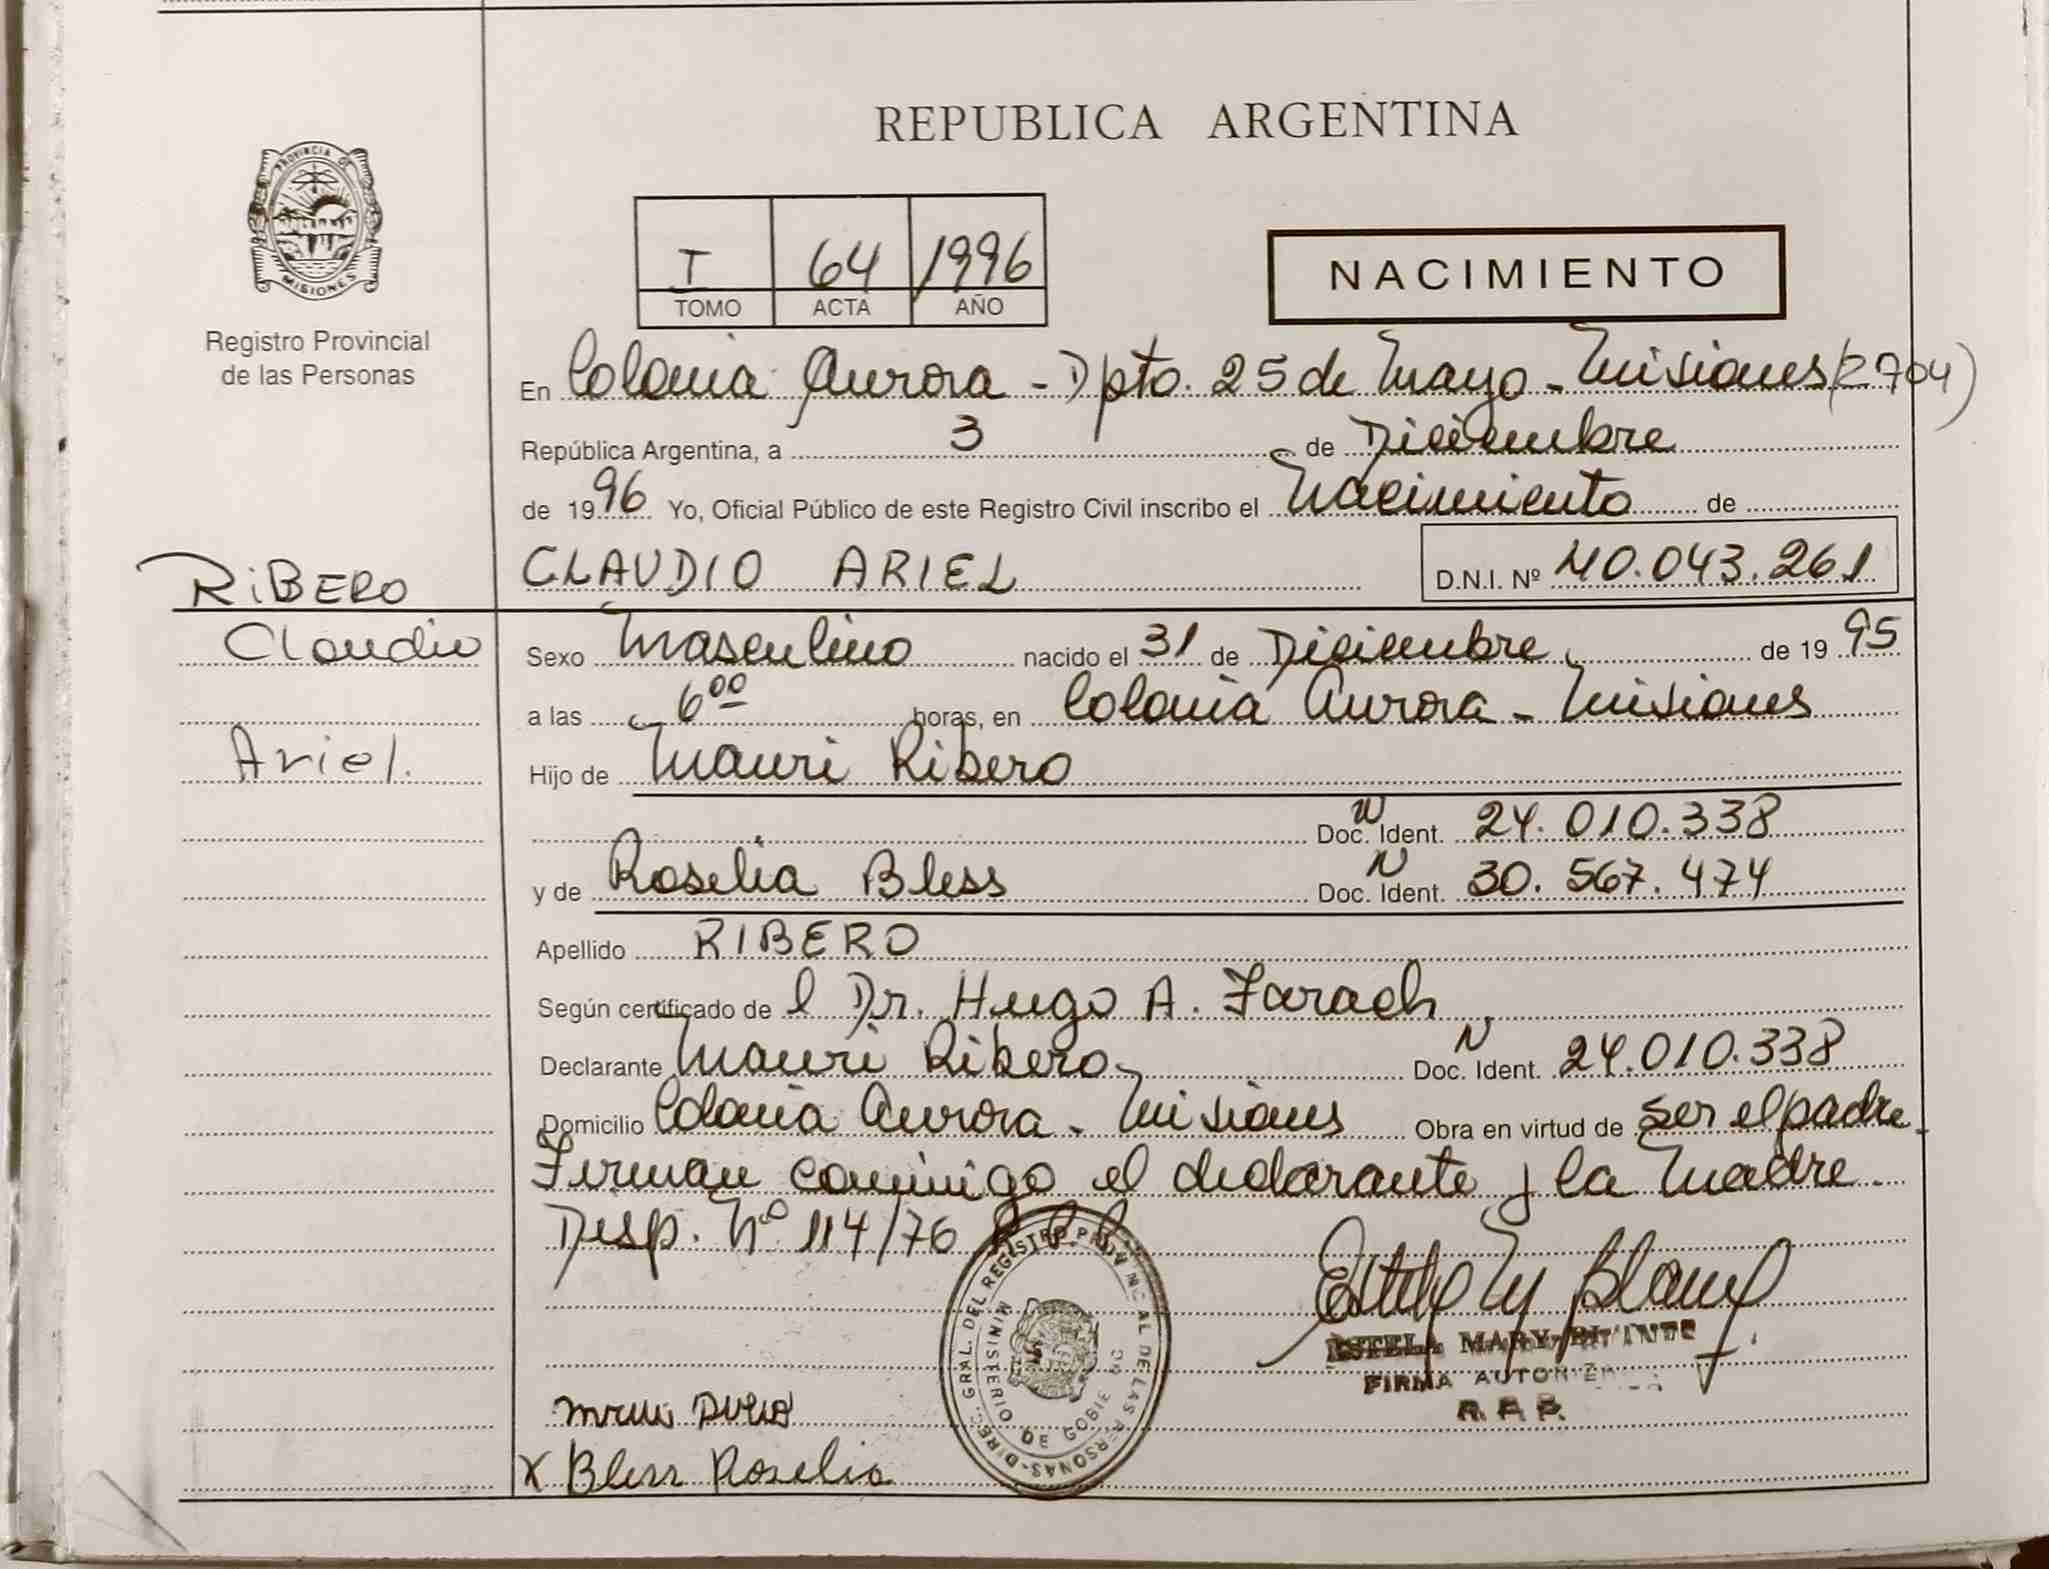 REPUBLICA ARGENTINA
PROVINCIA DE
MISIONES
Registro Provincial
de las Personas
I 64 1996
TOMO ACTA AÑO
NACIMIENTO
En Colonia Aurora - Dpto. 25 de Mayo - Misiones (2704)
República Argentina, a 3 de Diciembre
de 1996 Yo, Oficial Público de este Registro Civil inscribo el Nacimiento de
RIBERO CLAUDIO ARIEL D.N.I. Nº 40.043.261
Claudio Sexo Masculino nacido el 31 de Diciembre de 1995
a las 6 00 horas, en Colonia Aurora - Misiones
Ariel. Hijo de Mauri Ribero
N
Doc. Ident. 24.010.338
N
y de Roselia Bless Doc. Ident. 30.567.474
Apellido RIBERO
Según certificado de l Dr. Hugo A. Farach
N
Declarante Mauri Ribero Doc. Ident. 24.010.338
Domicilio Colonia Aurora - Misiones Obra en virtud de ser el padre.
Firman conmigo el declarante y la Madre.
Disp. Nº 114/76
DIREC. GRAL. DEL REGISTRO PROVINCIAL DE LAS PERSONAS
MINISTERIO DE GOBIERNO
ESTELA MARY
FIRMA AUTORIZADA
R. P. P.
X Bless Roselia